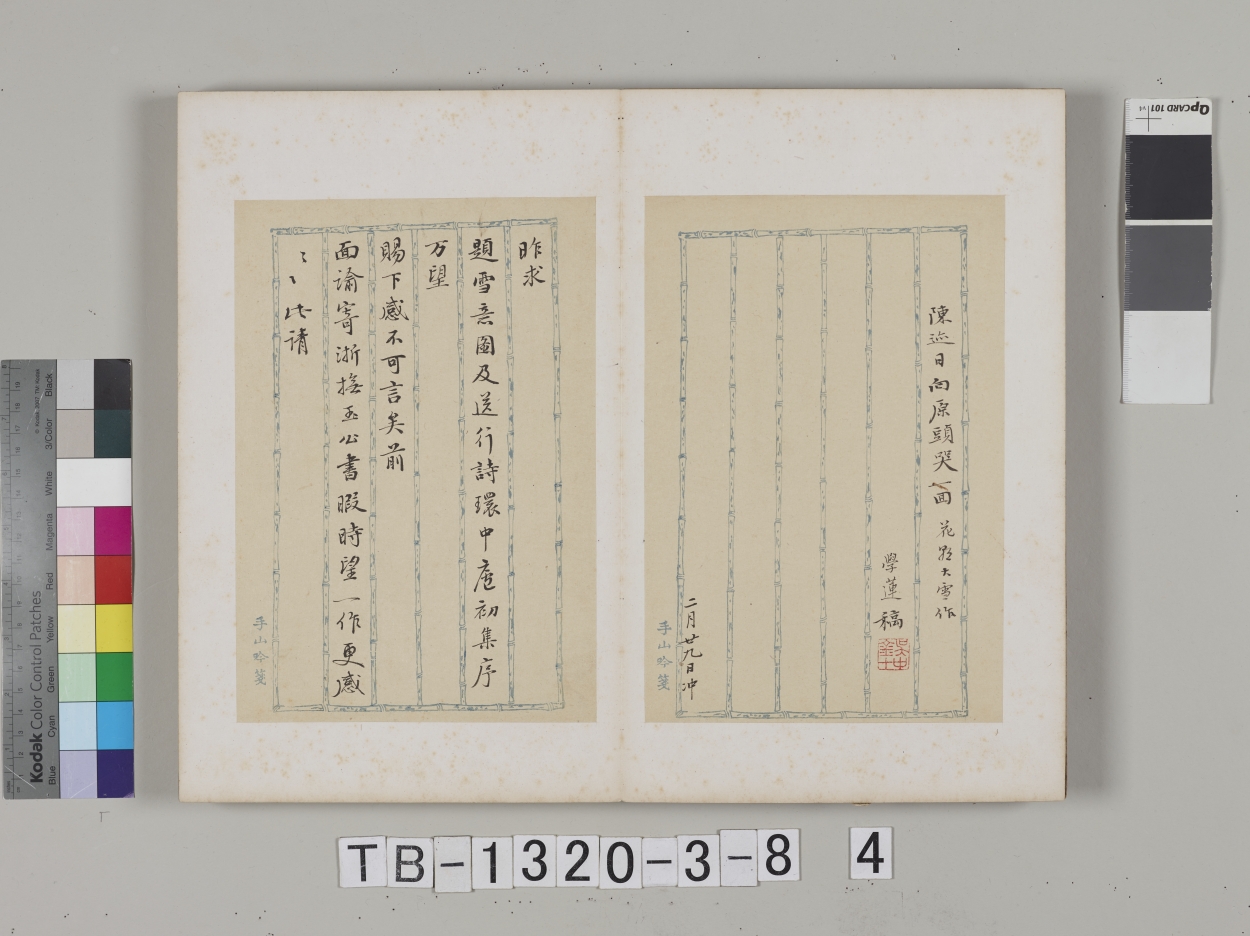 陳迹日向原頭哭一面 花影大雪作
學蓮稿
二月廿九日冲
手山吟箋
昨求
題雪意圖及送行詩環中庵初集序
万望
賜下感不可言矣前
面諭寄浙撫玉公書暇時望一作更感
〻〻此請
手山吟箋
TB-1320-3-8 4
QpCARD 101 v4
Kodak Color Control Patches
© Kodak, 2007 TM: Kodak
Blue Cyan Green Yellow Red Magenta White 3/Color Black